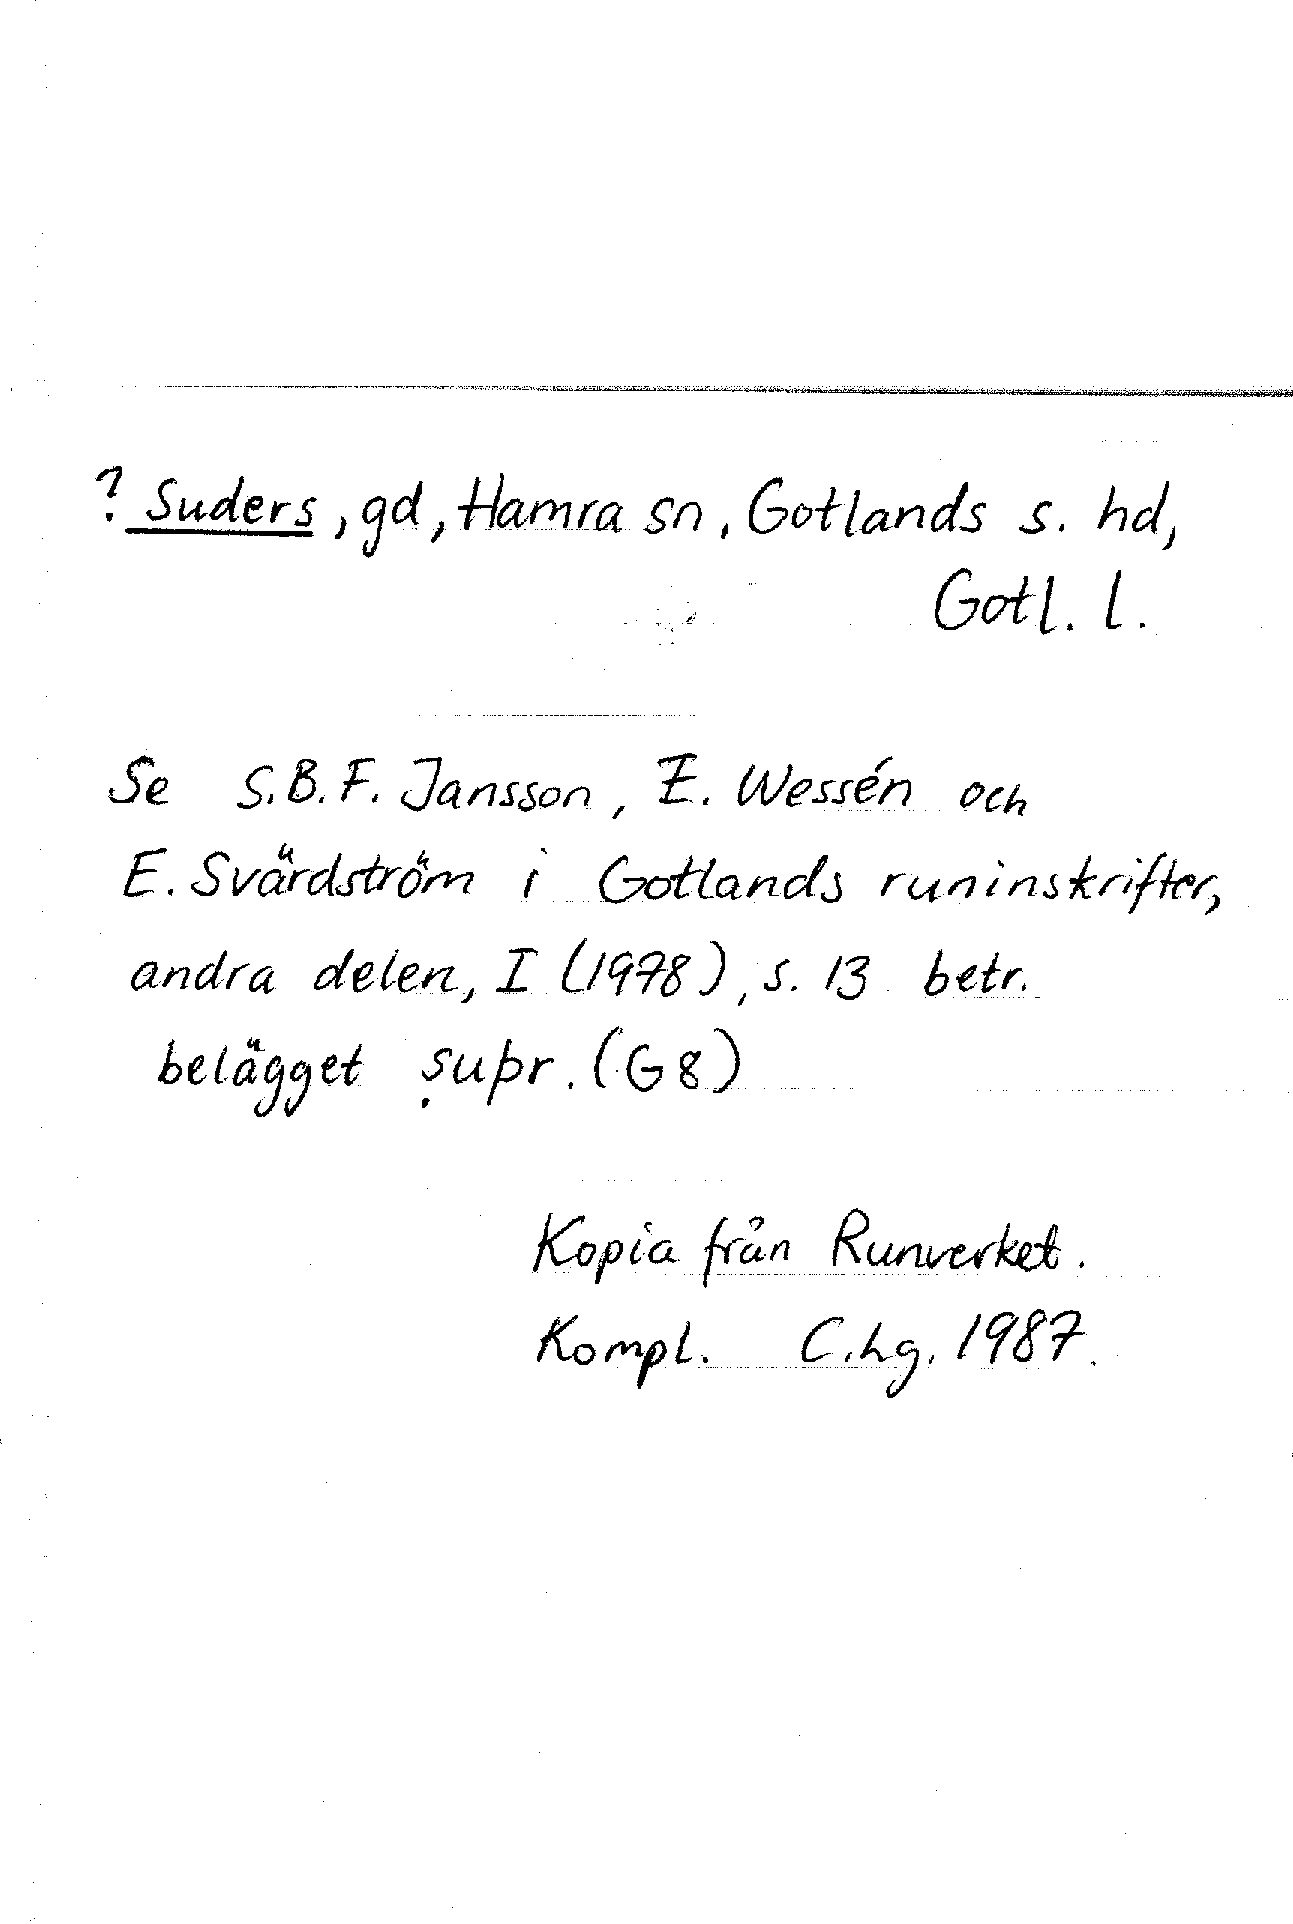 ? Suders, gd, Hamra sn, Gotlands s. hd,
Gotl. l.
Se S.B.F. Jansson, E. Wessén och
E. Svärdström i Gotlands runinskrifter,
andra delen, I (1978), s. 13 betr.
belägget ṣuþr. (G 8)
Kopia från Runverket.
Kompl. C.hg. 1987.